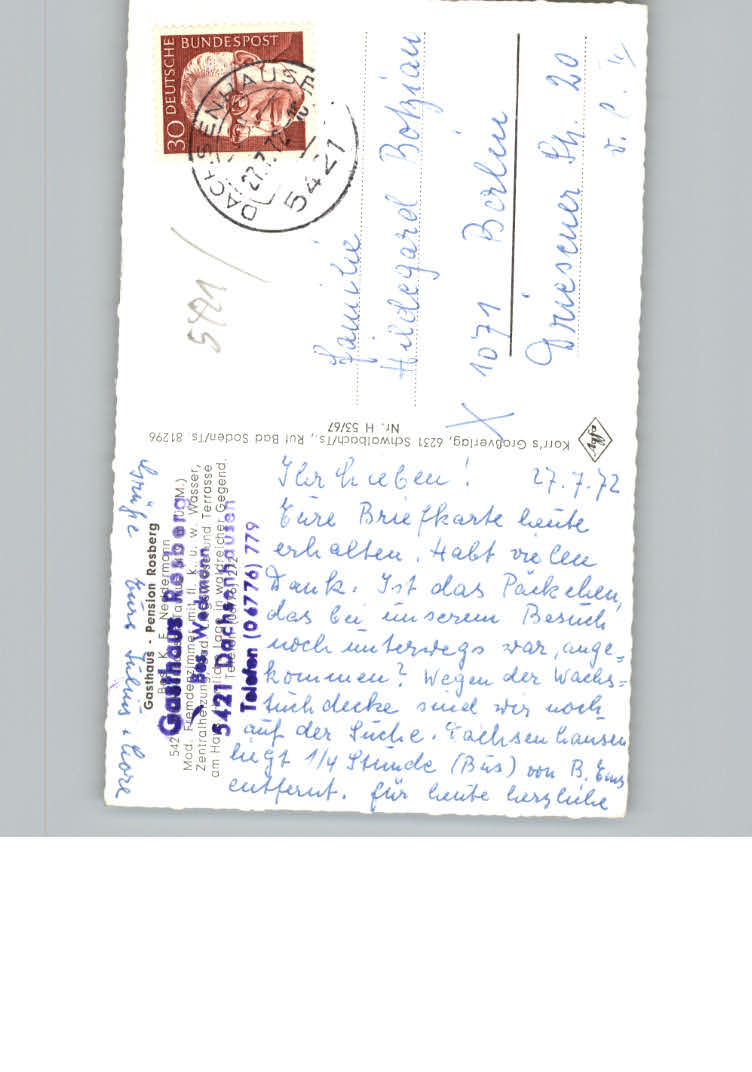 30 DEUTSCHE BUNDESPOST
DACHSENHAUSEN
27.7.72
5421
5421
Familie
Hildegard Botzian
X 1071 Berlin
Driesener Str. 20
v. P. 4
Korr's Großverlag, 6231 Schwalbach/Ts., Ruf Bad Soden/Ts. 81296
Nr. H 53/67
Gasthaus - Pension Rosberg
Bes. K. F. Neidermann
542
Mod. Fremdenzimmer mit fl. k. u. w. Wasser,
Zentralheizung, und Terrasse
am in waldreicher Gegend.
Gasthaus Rosberg
Bes. Wiedmann
5421 Dachsenhausen
Telefon (06776) 779
27.7.72
Ihr Lieben!
Eure Briefkarte heute
erhalten. Habt vielen
Dank. Ist das Päckchen,
das bei unserem Besuch
noch unterwegs war, ange=
kommen? Wegen der Wachs=
tuchdecke sind wir noch
auf der Suche. Dachsenhausen
liegt 1/4 Stunde (Bus) von B. Ems
entfernt. Für heute herzliche
Grüße Eure Julius + Lore